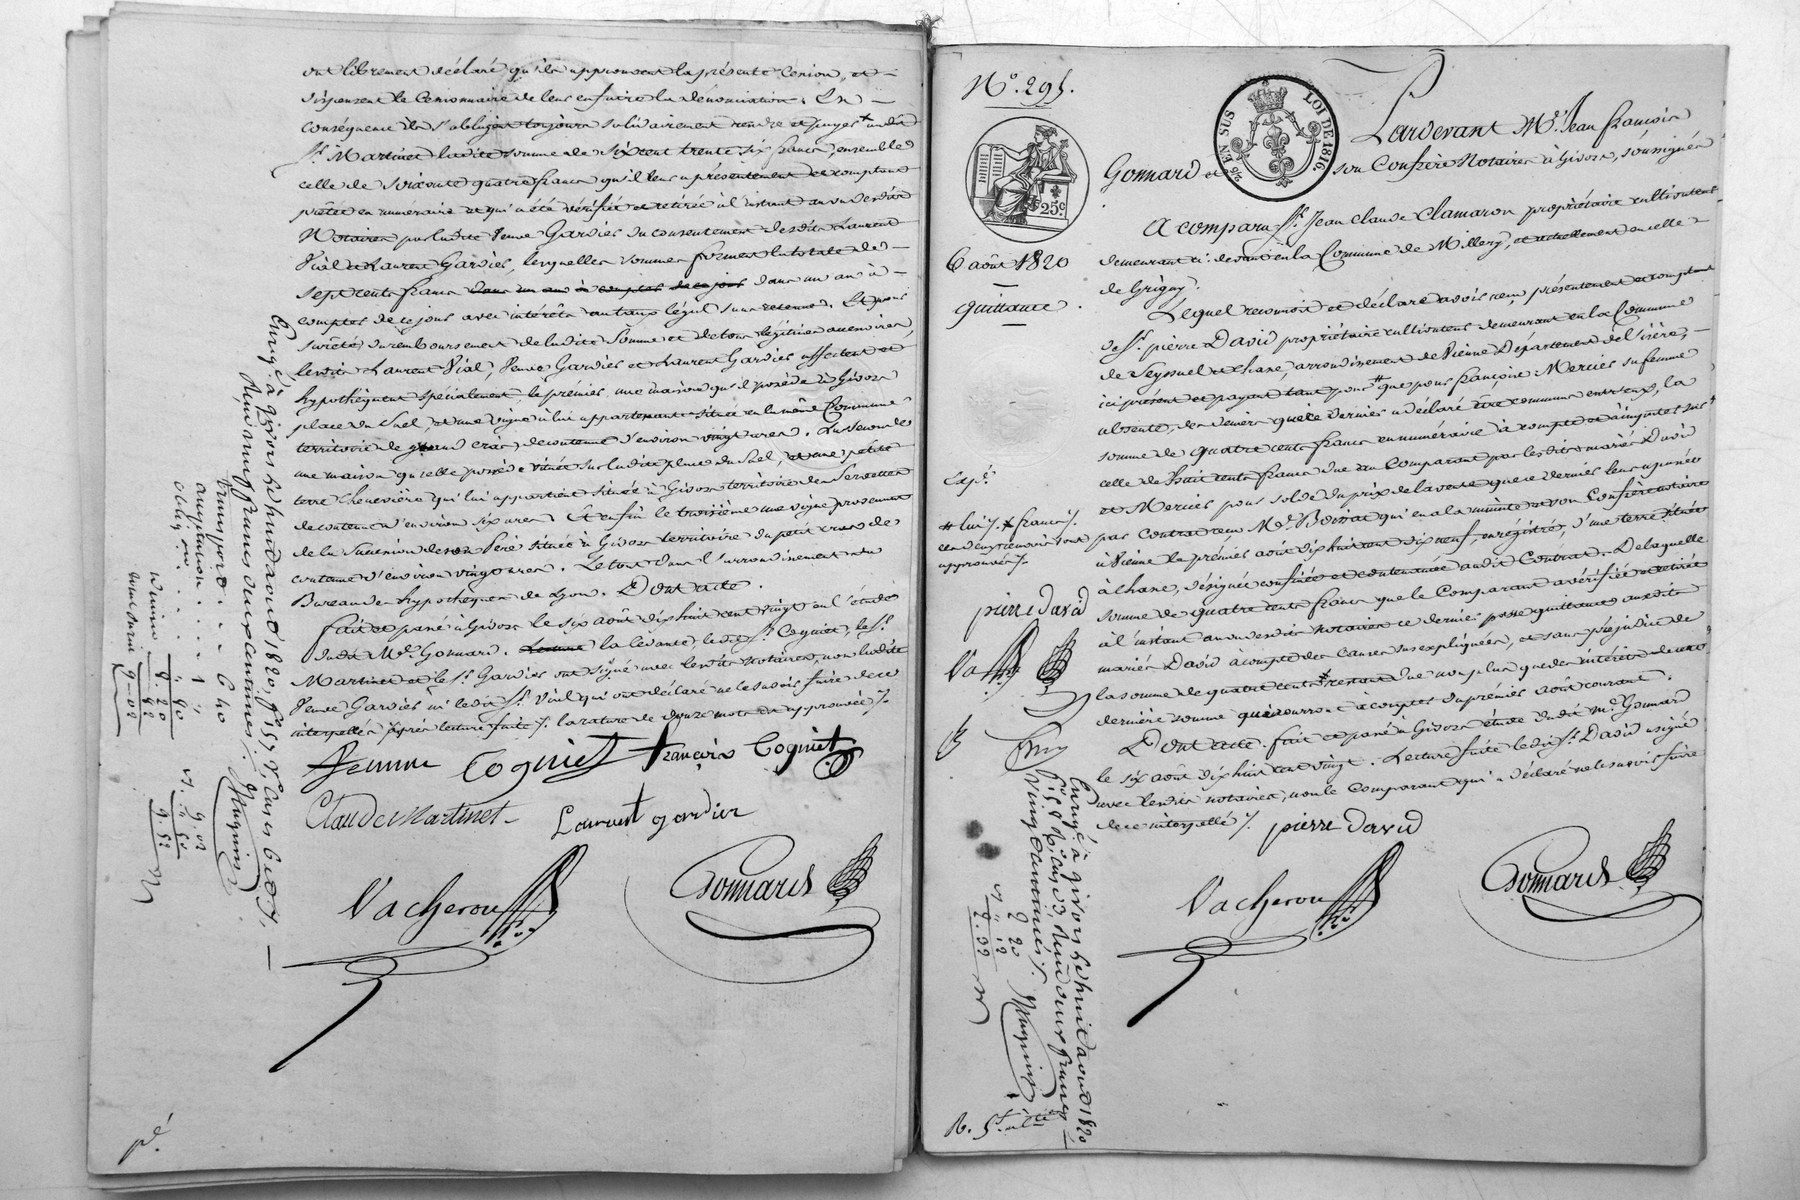 ont librement déclaré qu'ils approuvent la présente Cession, et
dispensent le Cessionnaire de leur en faire la dénonciation. En
conséquence ils s'obligent solidairement rendre et payer audit
Sr. Martinet ladite somme de six cent trente six francs, ensemble
celle de soixante quatre francs qu'il leur a présentement et comptant
prêtée en numéraire et qui a été vérifiée et retirée à l'instant au vu desdits
Notaires par ladite Veuve Gardier du consentement desdits Laurent
Vial et Laurent Gardier, lesquelles sommes forment la totale de
sept cents francs dans un an à compter de ce jour dans un an à
compter de ce jour avec intérêts au taux légal sans retenue. Et pour
sureté du remboursement de ladite Somme et de tous légitimes accessoires,
lesdits Laurent Vial, Veuve Gardier et Laurent Gardier affectent et
hypothèquent spécialement, le premier une maison qu'il possède à Givors
place du Suel, et une vigne à lui appartenante située en la même Commune
territoire de grand crai, de contenue d'environ vingt ares. La Seconde
une maison qu'elle possède située sur ladite place du Suel, et une petite
terre chenevière qui lui appartient située à Givors territoire de
de contenue d'environ six ares. Et enfin le troisième une vigne provenue
de la Succession de son Père située à Givors territoire du petit
contenue d'environ vingt ares. Le tout dans l'arrondissement du
Bureau des hypothèques de Lyon. Dont acte.
fait et passé à Givors le six août dix huit cent vingt en l'étude
dudit Me. Gonnard. Lecture la levante, ledit Sr. Cogniet, le Sr.
Martinet et le Sr. Gardier ont signé avec lesdits Notaires, non ladite
Veuve Gardier ni ledit Sr. Vial qui ont déclaré ne le savoir faire de ce
interpellés après lecture faite ./. la rature de douze mots approuvée ./.
femme Cogniet françois Cogniet
Claude Martinet Laurent gardier
Vacheron Gonnard
Enregé. à givors le huit aout 1820, fo. 157
Reçu neuf francs deux centimes
transport . . . 6 40
9-02
9 02
pé.
No. 295.
25c
6 août 1820
quittance.
EN SUS
LOI DE 1816.
Pardevant Me. Jean françois
Gonnard et son Confrère Notaires à Givors, soussignés
A comparu Sr. Jean Claude Clamaron propriétaire cultivateur
demeurant ci-devant en la Commune de Millery, et actuellement en celle
de Grigny.
Lequel reconnoit et déclare avoir reçu présentement et comptant
de Sr. pierre David propriétaire cultivateur demeurant en la Commune
de Seyssuel et chane, arrondissement de Vienne Département de l'isère,
ici présent et payant tant pour # que pour françoise Mercier sa femme
absente, des deniers que ce dernier a déclaré être communs entr'eux, la
somme de quatre cents francs en numéraire à compte et à imputer sur
celle de huit cents francs due au Comparant par lesdits mariés David
et Mercier pour solde du prix de la vente que ce dernier leur a passée
par Contrat reçu Me. Boissat qui en a la minute et son Confrère notaires
à Vienne le premier août dix huit cent dix neuf, enregistré, d'une terre située
à chane, désignée confinée et contenancée audit Contrat. De laquelle
somme de quatre cents francs que le Comparant a vérifiée et retirée
à l'instant au vu desdits Notaires ce dernier passe quittance auxdits
mariés David à compte des causes susexpliquées, et sans préjudice de
la somme de quatre cents * restant due non plus que des intérêts de cette
dernière somme qui courront à compter du premier août courant.
Dont acte. fait et passé à Givors étude dudit Me. Gonnard
le six août dix huit cent vingt. Lecture faite ledit Sr. David a signé
avec lesdits notaires, non le Comparant qui a déclaré ne le savoir faire
de ce interpellé ./. pierre david
Vacheron Gonnard
Expé.
# lui ./. * francs ./.
approuvés ./.
pierre david
Va
Enregé. à givors le huit aout 1820
Reçu deux francs
vingt centimes ./.
2 20
2. 32